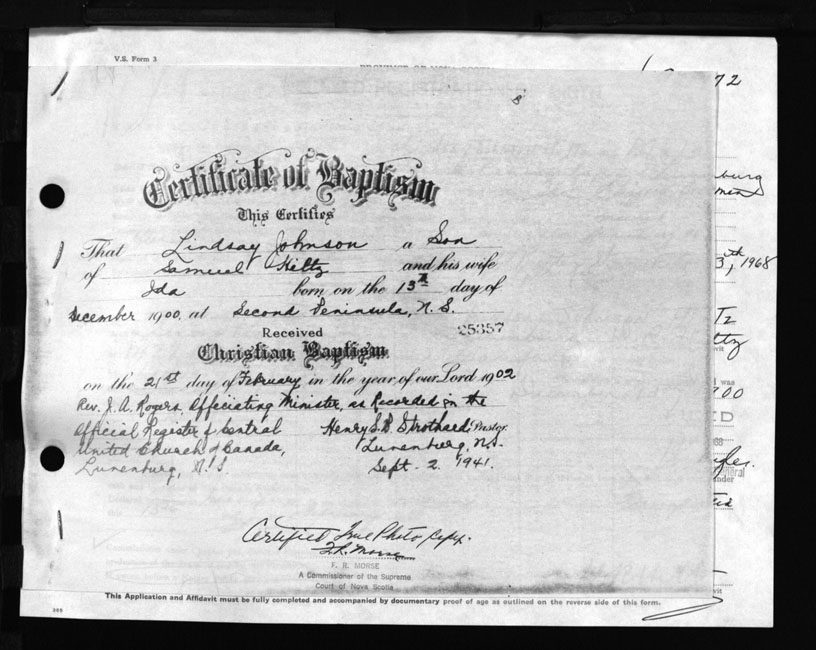 V.S. Form 3
72
8
Certificate of Baptism
This Certifies
That Lindsay Johnson a Son
of Samuel Hiltz and his wife
Ida born on the 13th day of
December 1900, at Second Peninsula, N.S.
Received 25357
Christian Baptism
on the 21st day of February in the year of our Lord 1902
Rev. J. A. Rogers Officiating Minister, as Recorded in the
Official Register of Central Henry S. B. Strothard Pastor
United Church of Canada, Lunenburg, N.S.
Lunenburg, N.S. Sept. 2 1941.
burg
3th, 1968
tz
was
900
ED
under
Certified True Photo Copy.
F. R. Morse
F. R. MORSE
A Commissioner of the Supreme
Court of Nova Scotia
This Application and Affidavit must be fully completed and accompanied by documentary proof of age as outlined on the reverse side of this form.